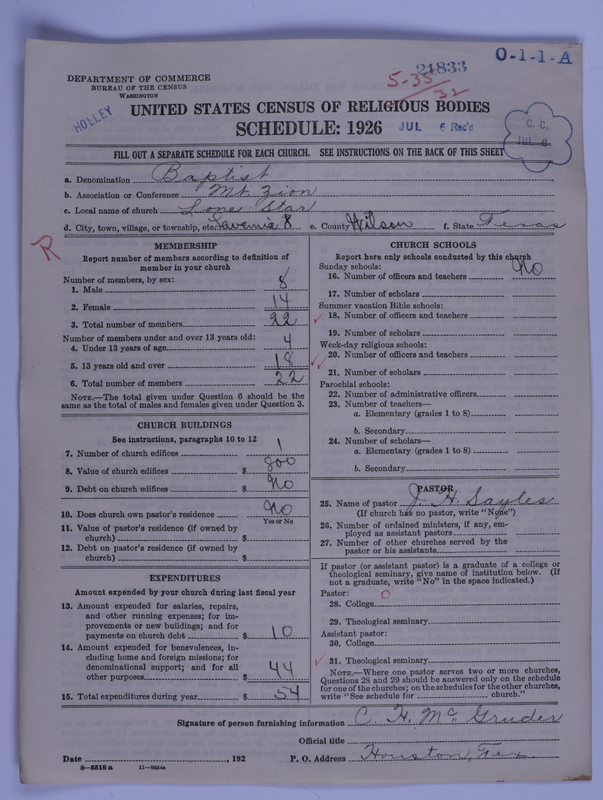 24833
O-1-1-A
5-35
32
DEPARTMENT OF COMMERCE
BUREAU OF THE CENSUS
WASHINGTON
HOLLEY
UNITED STATES CENSUS OF RELIGIOUS BODIES
SCHEDULE: 1926
JUL 6 Rec'd
C. C.
JUL 6
FILL OUT A SEPARATE SCHEDULE FOR EACH CHURCH. SEE INSTRUCTIONS ON THE BACK OF THIS SHEET
a. Denomination Baptist
b. Association or Conference Mt. Zion
c. Local name of church Lone Star
d. City, town, village, or township, etc. Lavernia 8 e. County Wilson f. State Texas
R
MEMBERSHIP
Report number of members according to definition of
member in your church
Number of members, by sex:
1. Male 8
2. Female 14
3. Total number of members 22
Number of members under and over 13 years old:
4. Under 13 years of age 4
5. 13 years old and over 18
6. Total number of members 22
NOTE.—The total given under Question 6 should be
same as the total of males and females given under Question 3.
CHURCH BUILDINGS
See instructions, paragraphs 10 to 12
7. Number of church edifices 1
8. Value of church edifices $ 800
9. Debt on church edifices $ No
10. Does church own pastor's residence No
Yes or No
11. Value of pastor's residence (if owned by
church) $
12. Debt on pastor's residence (if owned by
church) $
EXPENDITURES
Amount expended by your church during last fiscal year
13. Amount expended for salaries, repairs,
and other running expenses; for im-
provements or new buildings; and for
payments on church debt $ 10
14. Amount expended for benevolences, in-
cluding home and foreign missions; for
denominational support; and for all
other purposes $ 44
15. Total expenditures during year $ 54
CHURCH SCHOOLS
Report here only schools conducted by this church
Sunday schools: No
16. Number of officers and teachers
17. Number of scholars
Summer vacation Bible schools:
18. Number of officers and teachers
19. Number of scholars
Week-day religious schools:
20. Number of officers and teachers
21. Number of scholars
Parochial schools:
22. Number of administrative officers
23. Number of teachers—
a. Elementary (grades 1 to 8)
b. Secondary
24. Number of scholars—
a. Elementary (grades 1 to 8)
b. Secondary
PASTOR
25. Name of pastor J. H. Sayles
(If church has no pastor, write "None")
26. Number of ordained ministers, if any, em-
ployed as assistant pastors
27. Number of other churches served by the
pastor or his assistants
If pastor (or assistant pastor) is a graduate of a college or
theological seminary, give name of institution below. (If
not a graduate, write "No" in the space indicated.)
Pastor: 0
28. College
29. Theological seminary
Assistant pastor:
30. College
31. Theological seminary
NOTE.—Where one pastor serves two or more churches,
Questions 28 and 29 should be answered only on the schedule
for one of the churches; on the schedules for the other churches,
write "See schedule for church."
Signature of person furnishing information C. H. McGruder
Official title
Date , 192 P. O. Address Houston, Tex.
8—5518a 11—9054a